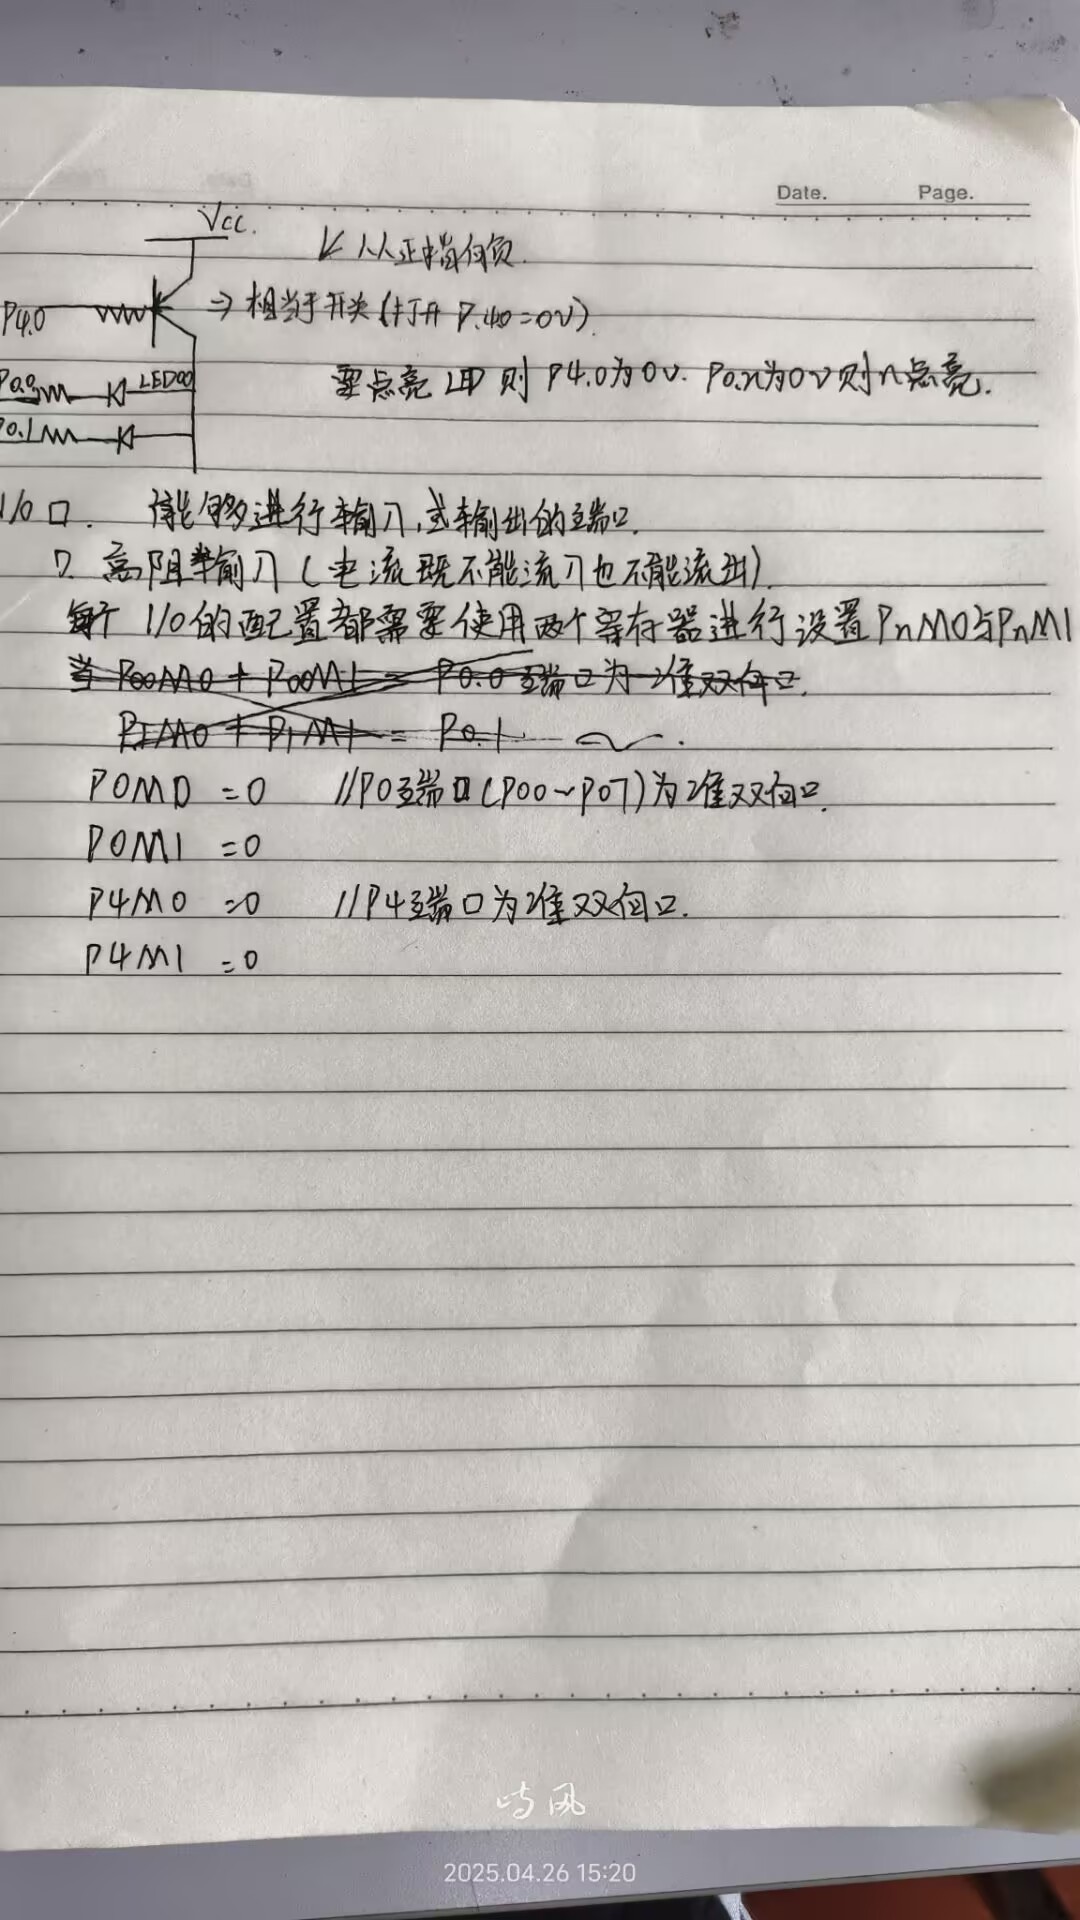 Date. Page.
Vcc.
↙ 从正指向负.
P4.0 ⇒ 相当于开关(打开 P.40=0V)
P0.0 LED00 要点亮 LED 则 P4.0为0V. P0.n为0V则n点亮.
P0.1
I/O口. 能够进行输入,或输出的端口.
7. 高阻输入(电流既不能流入也不能流出).
每个 I/O的配置都需要使用两个寄存器进行设置PnM0与PnM1
当 P00M0 + P00M1 = P0.0 端口为准双向口.
P1M0 + P1M1 = P0.1 ~ .
P0M0 =0 //P0端口(P00~P07)为准双向口.
P0M1 =0
P4M0 =0 //P4端口为准双向口.
P4M1 =0
2025.04.26 15:20